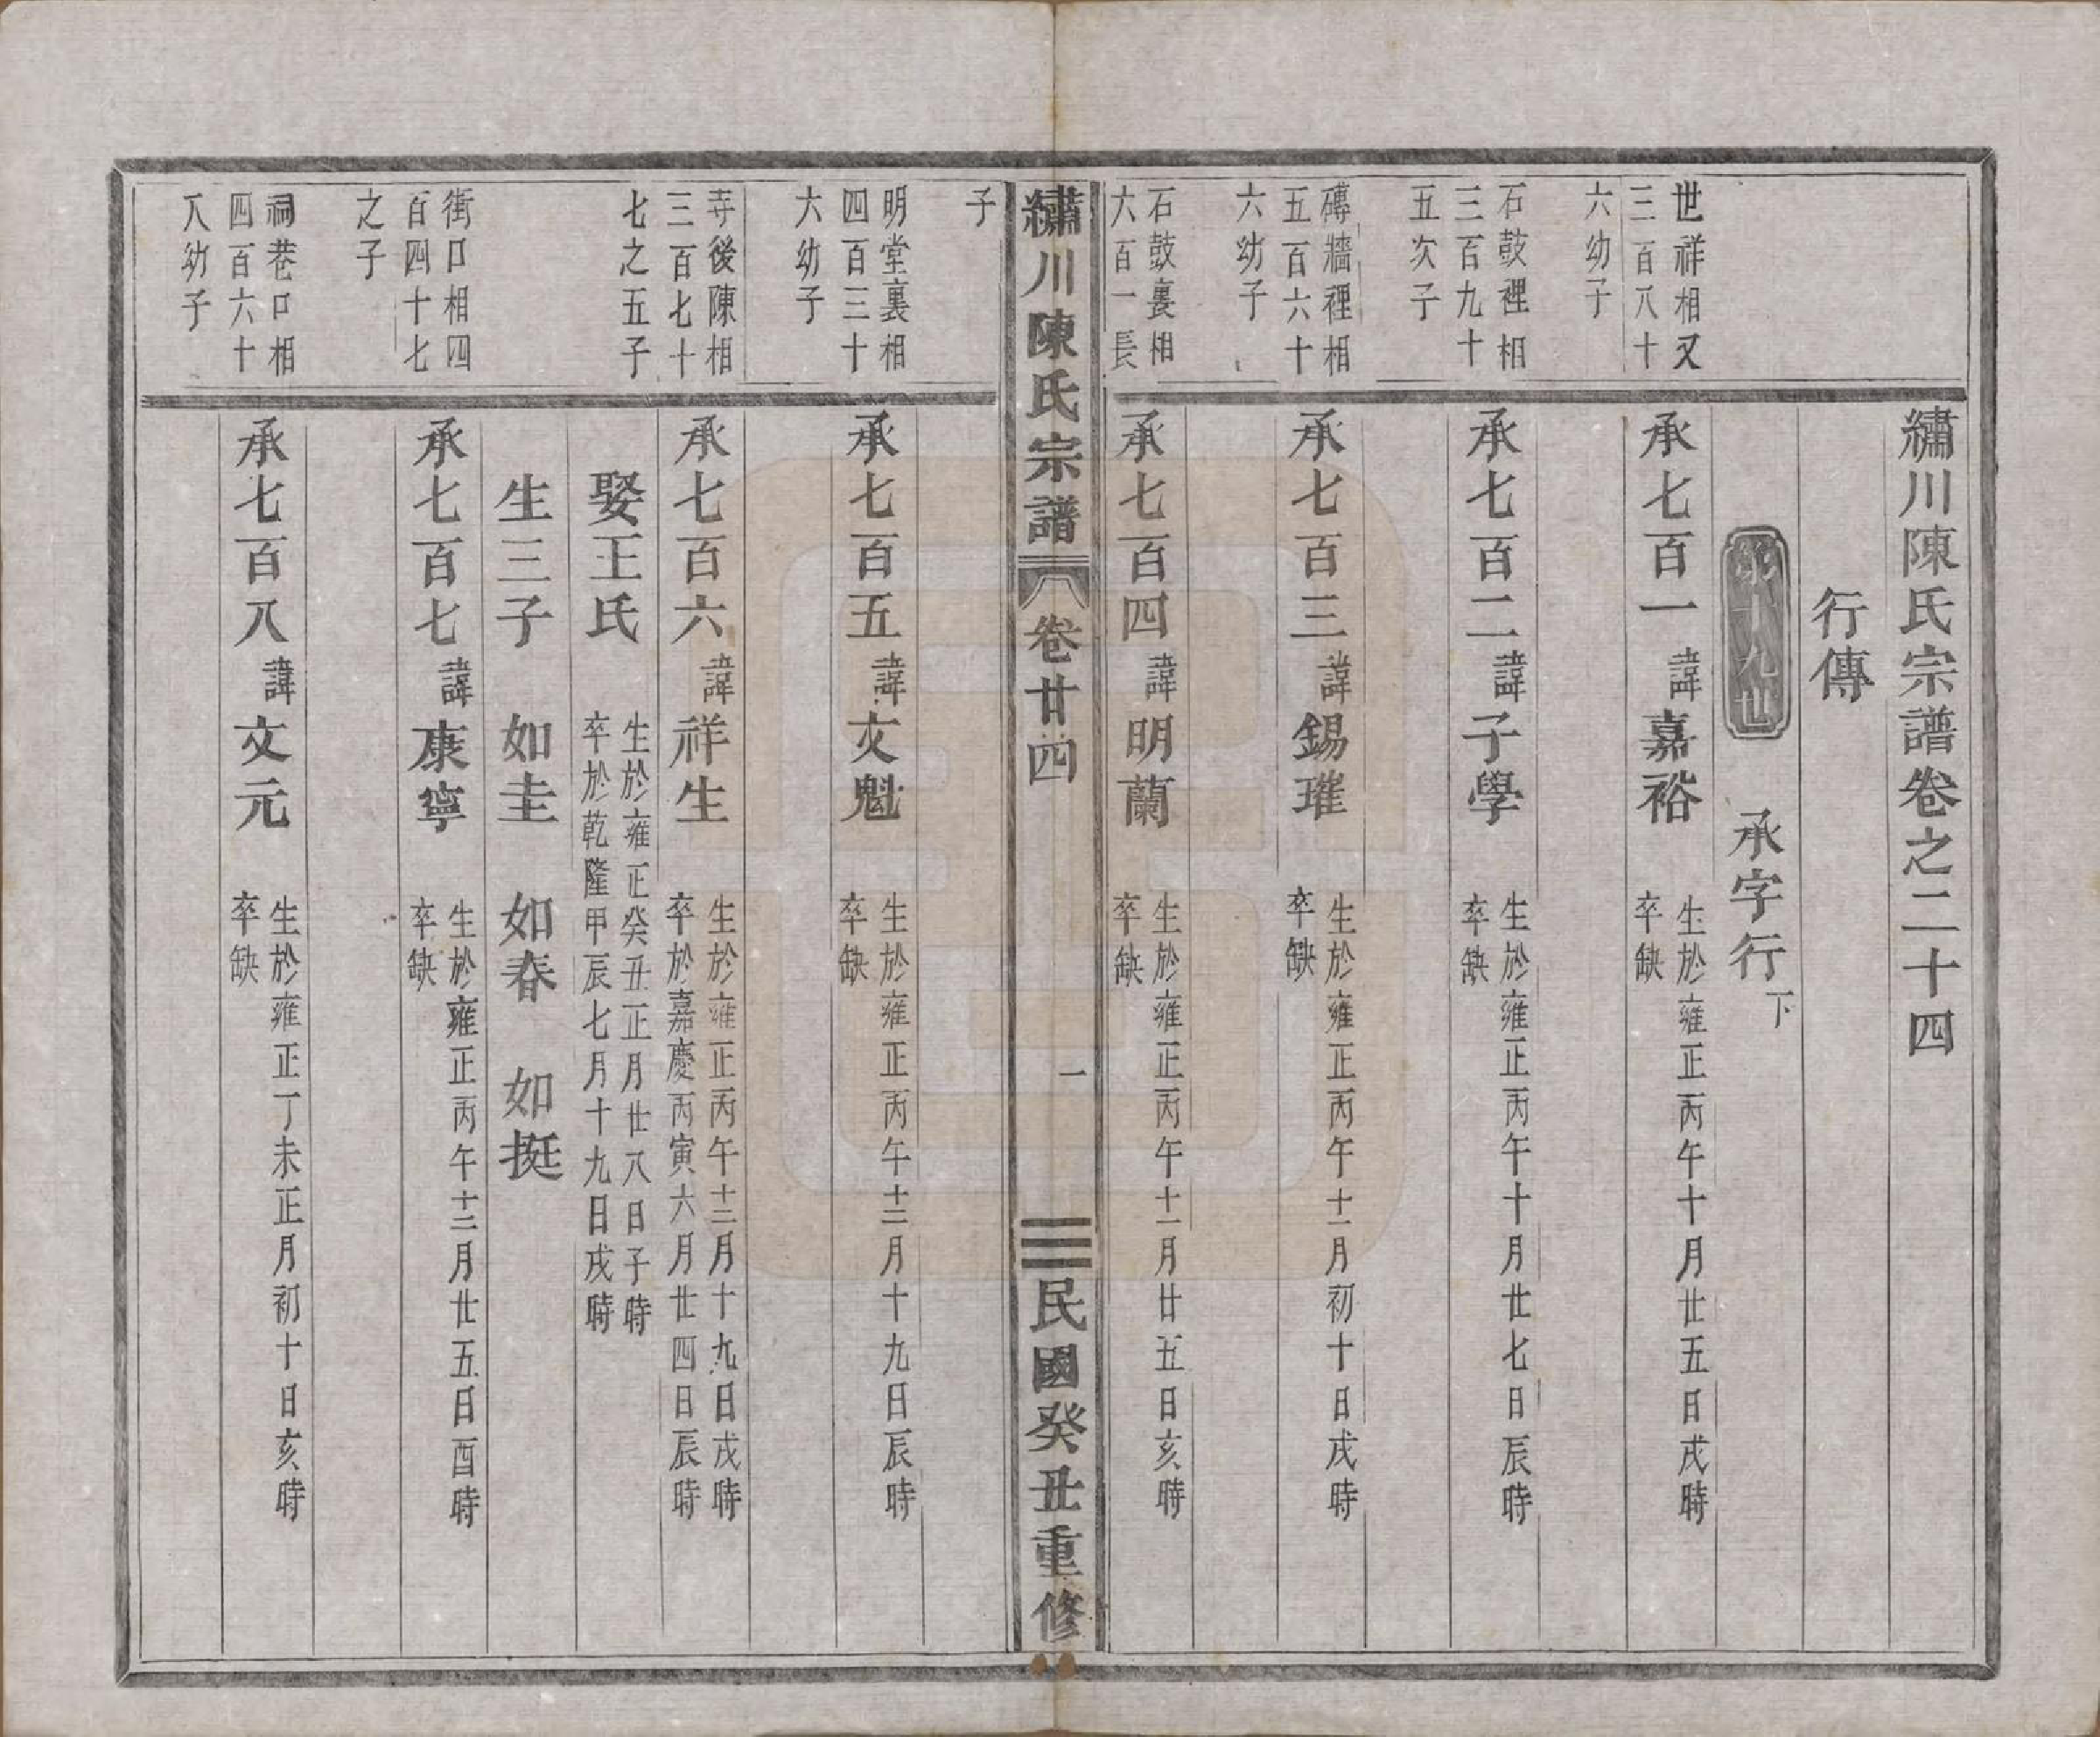 繡川陳氏宗譜卷之二十四
行傳
第十九世
承字行下
世祥相又
三百八十
六幼子
承七百一諱嘉裕
生於雍正丙午十月廿五日戌時
卒缺
石鼓裡相
三百九十
五次子
承七百二諱子學
生於雍正丙午十月廿七日辰時
卒缺
磚牆裡相
五百六十
六幼子
承七百三諱錫璀
生於雍正丙午十一月初十日戌時
卒缺
石鼓裏相
六百一長
承七百四諱明蘭
生於雍正丙午十一月廿五日亥時
卒缺
繡川陳氏宗譜
卷廿四
一
民國癸丑重修
子
明堂裏相
四百三十
六幼子
承七百五諱文魁
生於雍正丙午十二月十九日辰時
卒缺
寺後陳相
三百七十
七之五子
承七百六諱祥生
生於雍正丙午十二月十九日戌時
卒於嘉慶丙寅六月廿四日辰時
娶王氏
生於雍正癸丑正月廿八日子時
卒於乾隆甲辰七月十九日戌時
生三子 如圭 如春 如挺
街口相四
百四十七
之子
承七百七諱康寧
生於雍正丙午十二月廿五日酉時
卒缺
祠巷口相
四百六十
八幼子
承七百八諱文元
生於雍正丁未正月初十日亥時
卒缺